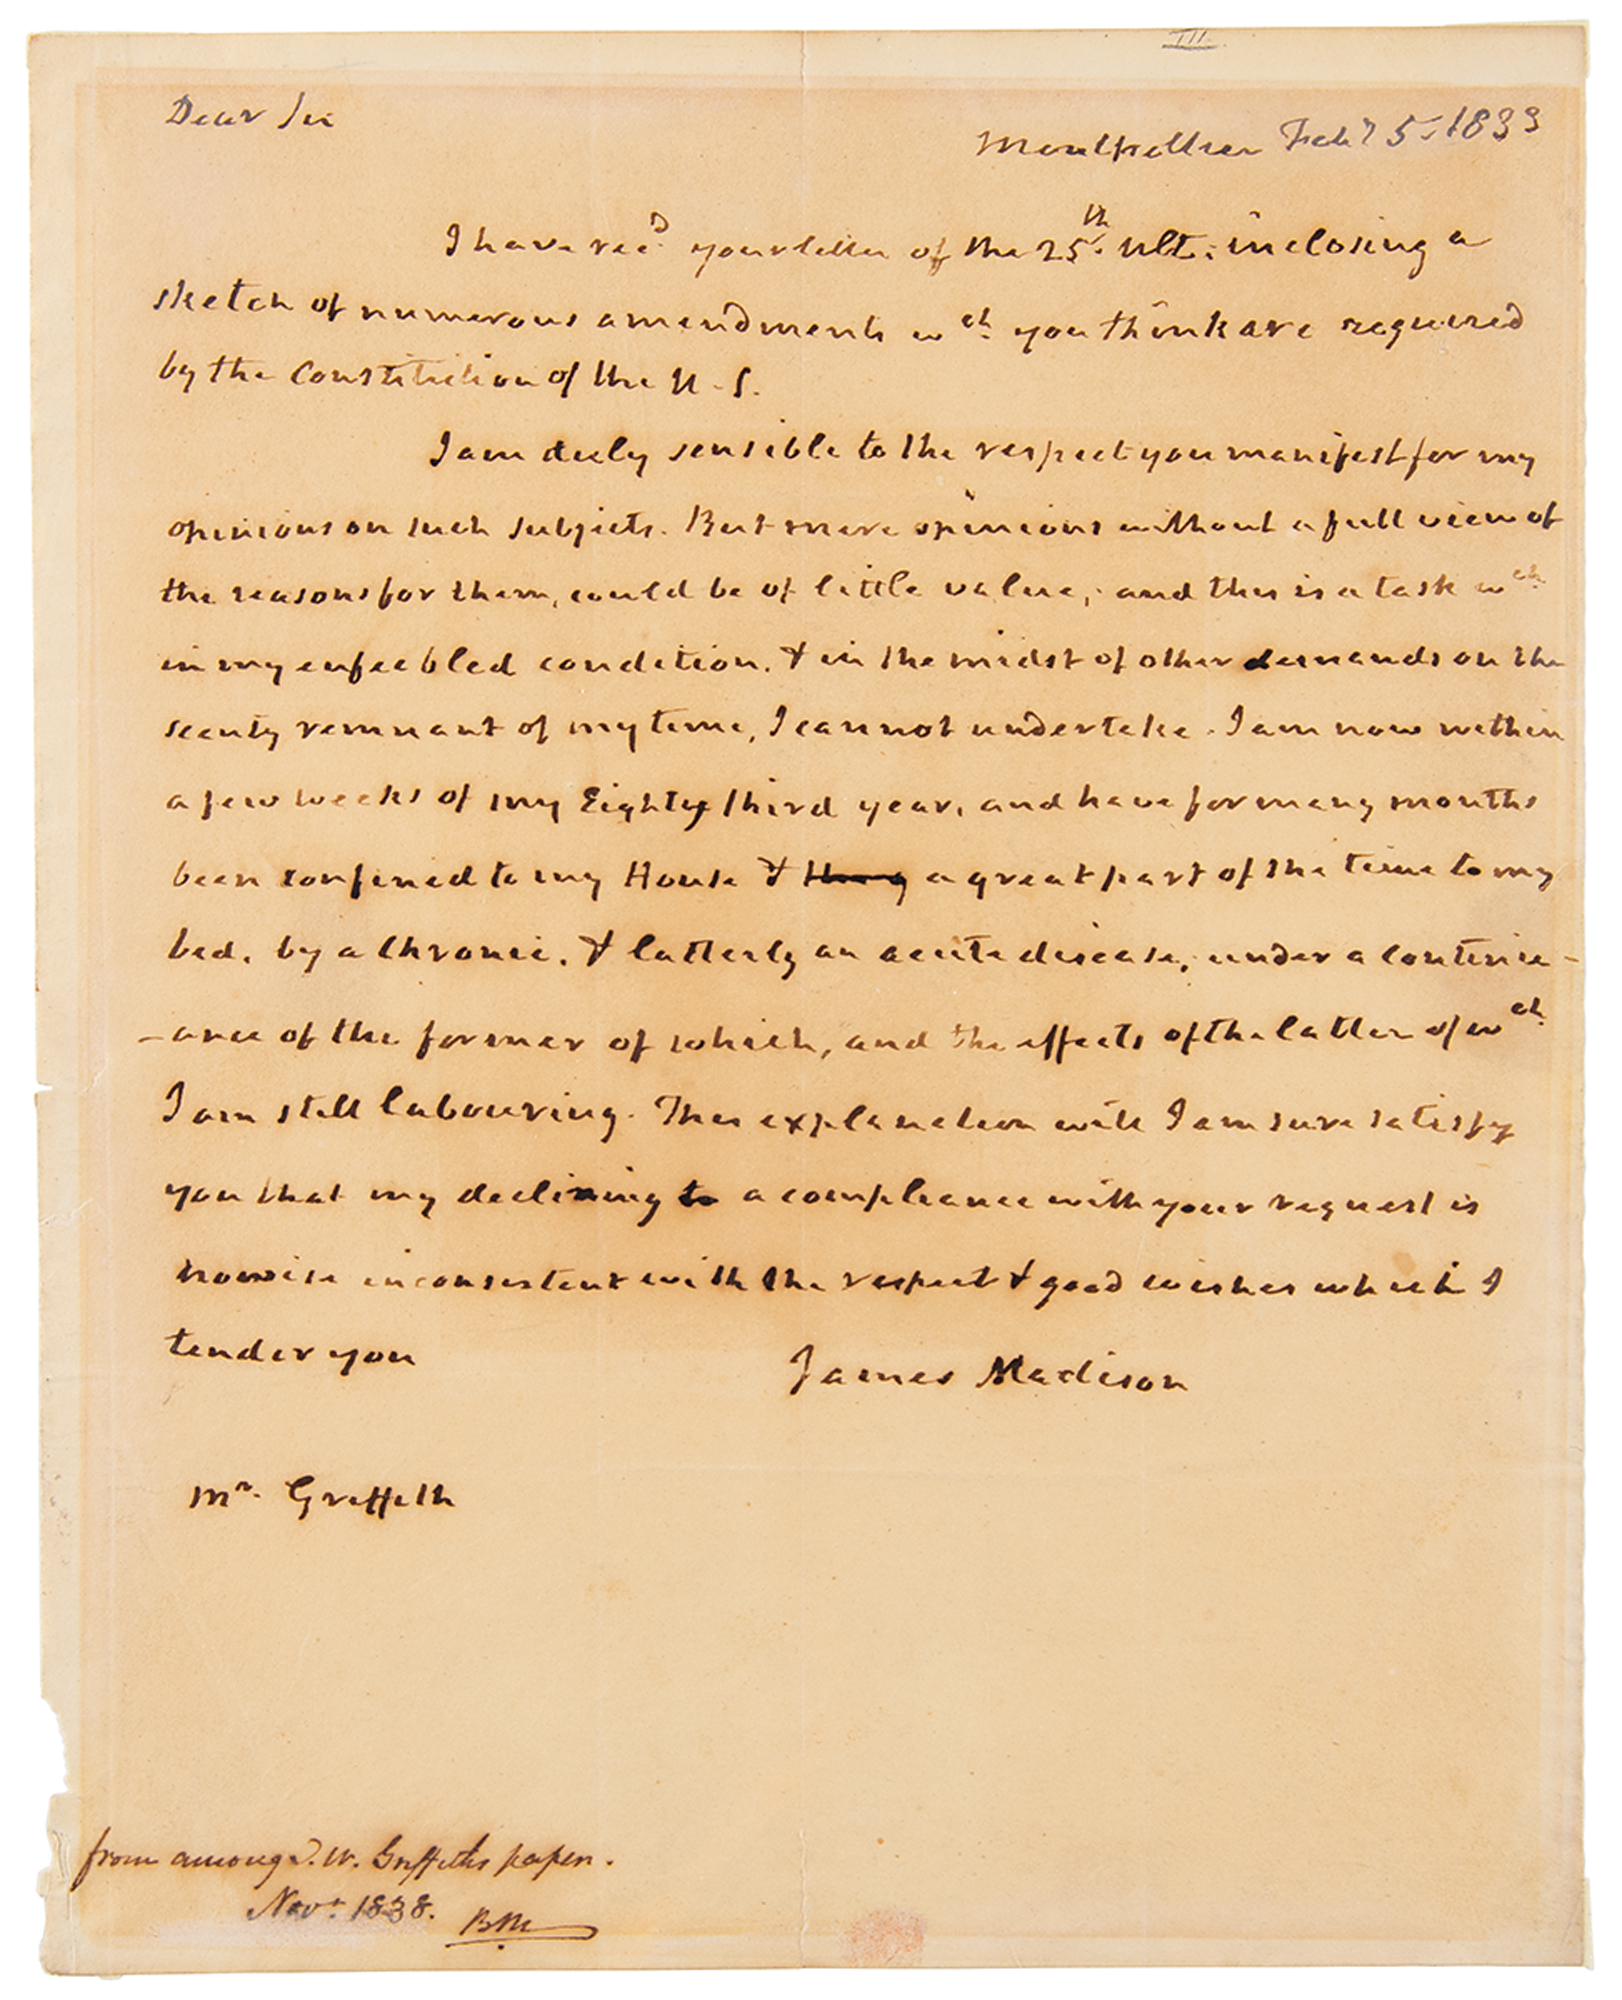 III
Dear Sir
Montpellier Feby 5, 1833
I have recd. your letter of the 25th. Ult: inclosing a
sketch of numerous amendments wch. you think are required
by the Constitution of the U. S.
I am duly sensible to the respect you manifest for my
opinions on such subjects. But mere opinions without a full view of
the reasons for them, could be of little value; and this is a task wch.
in my enfeebled condition, & in the midst of other demands on the
scanty remnant of my time, I cannot undertake. I am now within
a few weeks of my Eighty third year, and have for many months
been confined to my House & a great part of the time to my
bed, by a Chronic, & latterly an acute disease; under a continu-
-ance of the former of which, and the effects of the latter of wch.
I am still labouring. This explanation will I am sure satisfy
you that my declining to a compliance with your request is
nowise inconsistent with the respect & good wishes which I
tender you
James Madison
Mr. Griffith
from among J. W. Griffith's papers.
Novr. 1838. BM